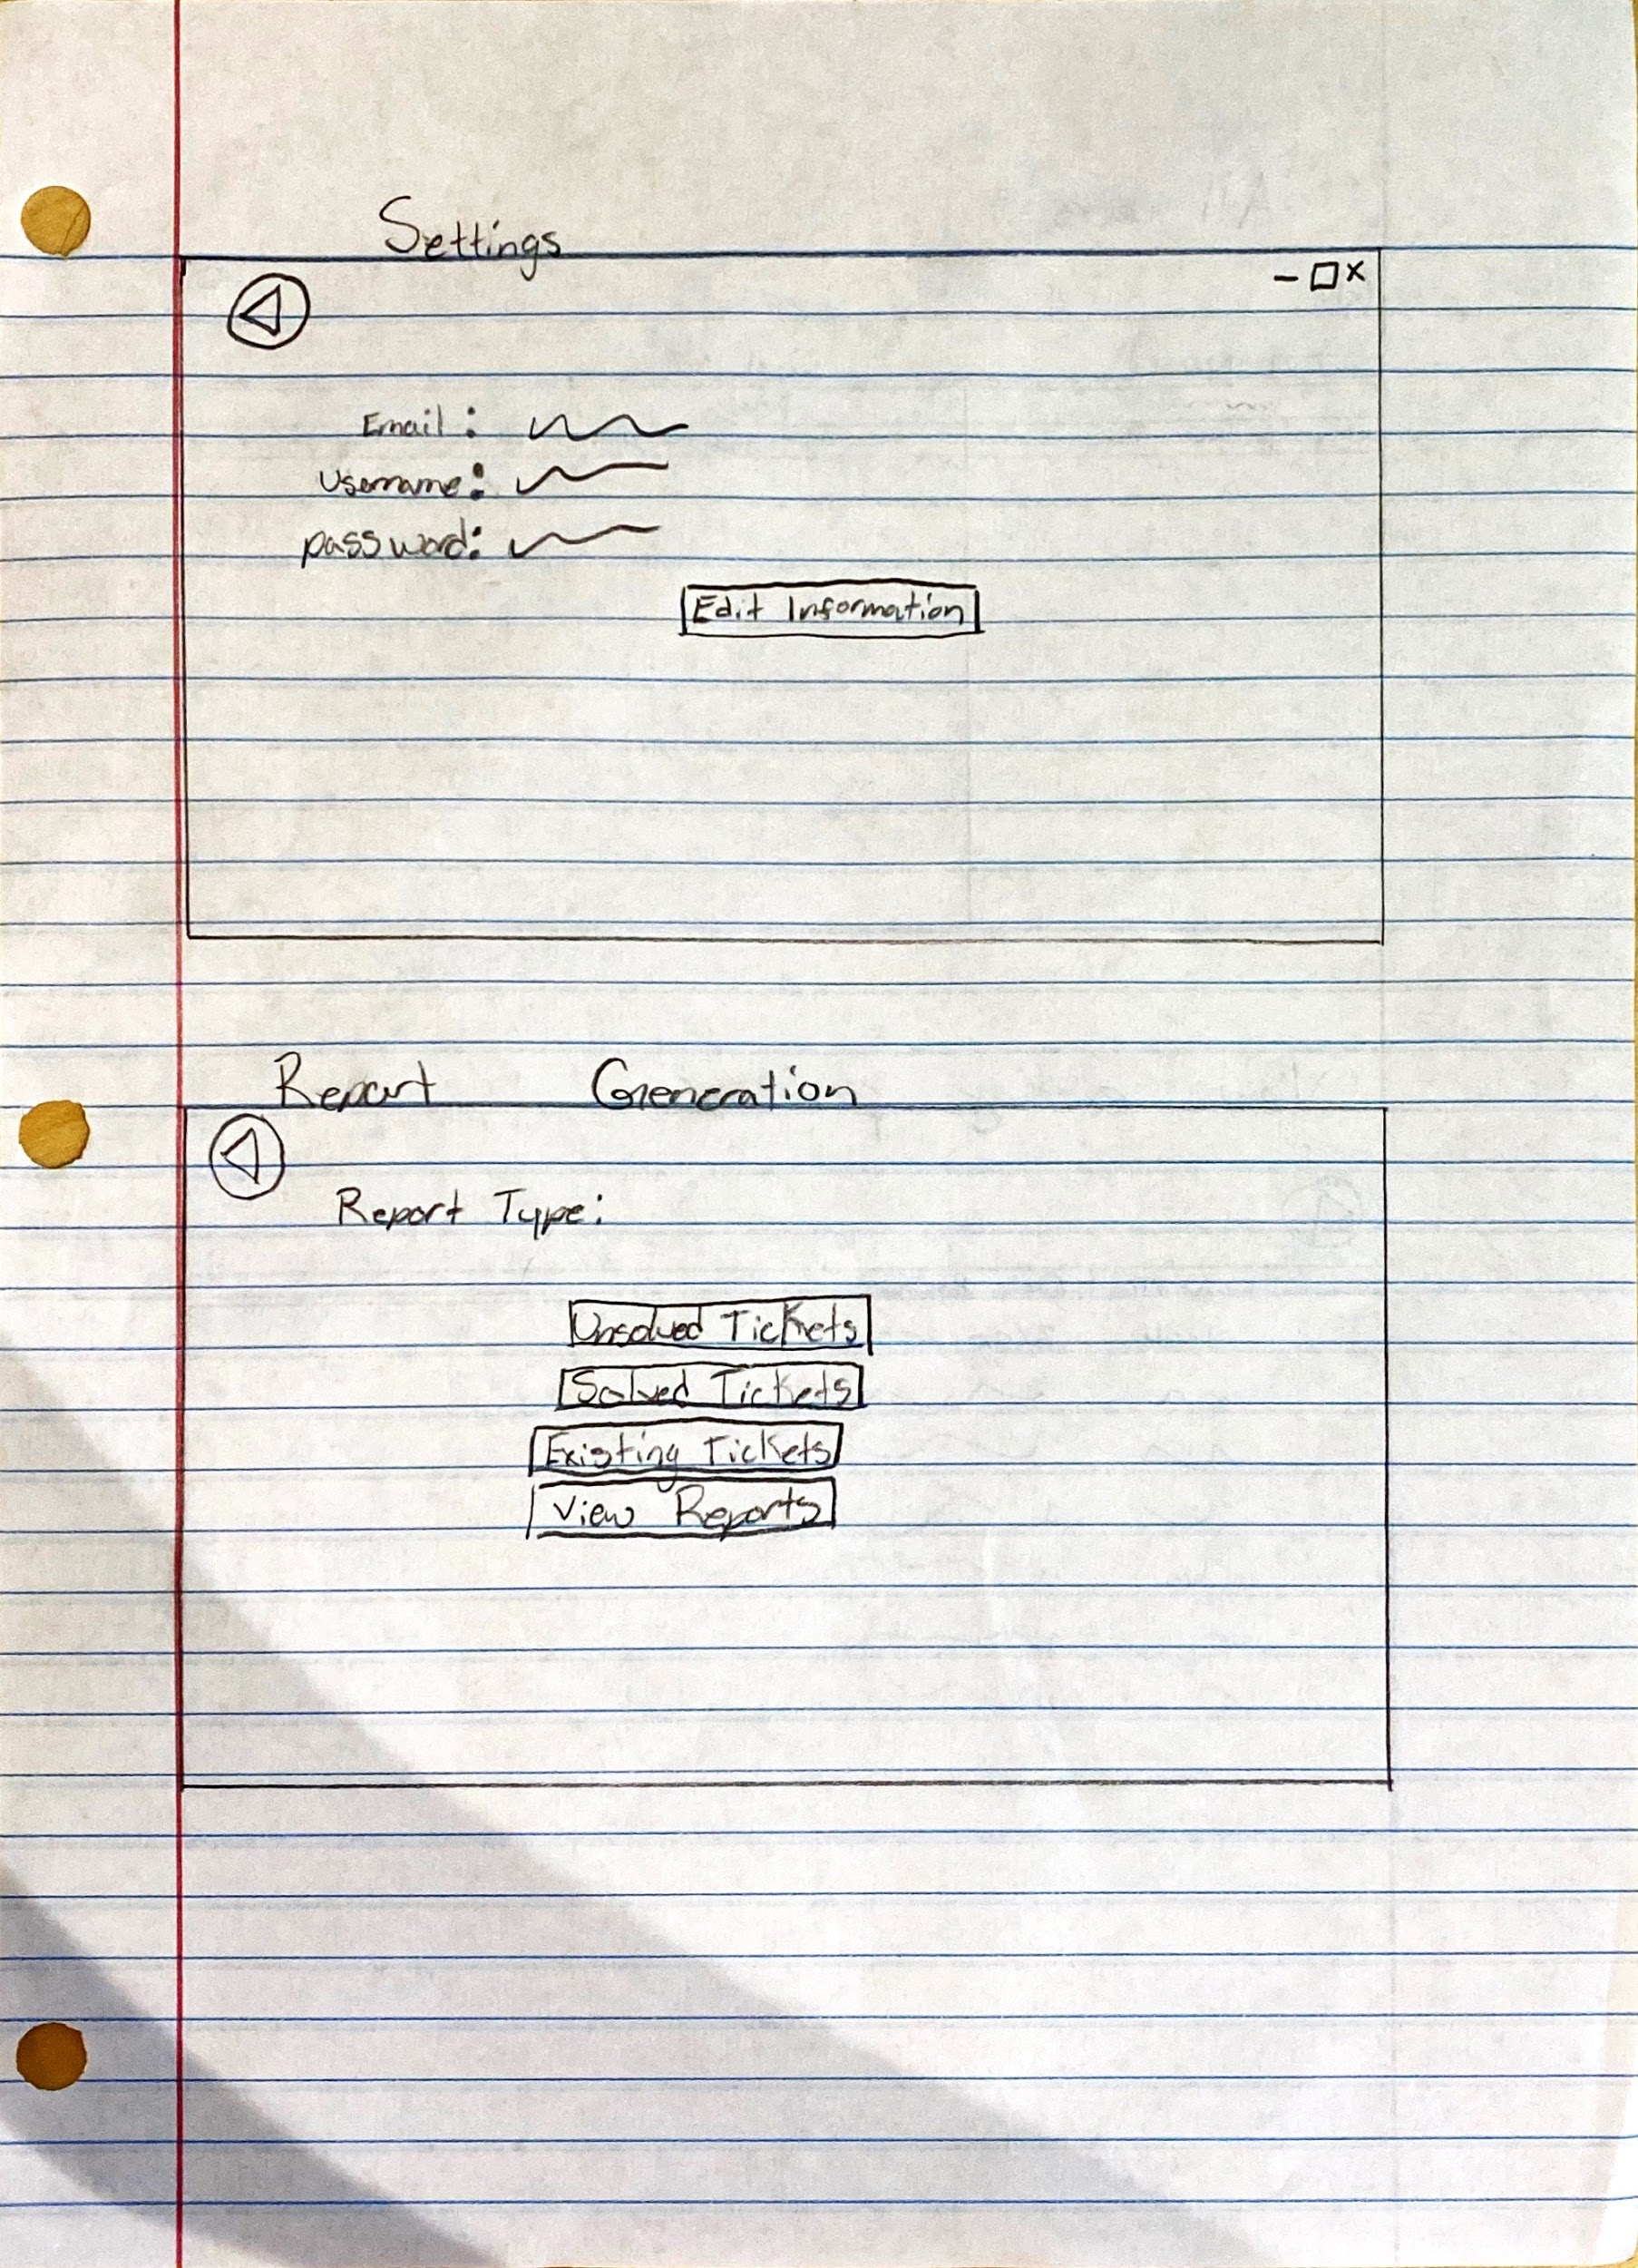 Settings
- □ x
Email:
username:
password:
Edit Information
Report Generation
Report Type:
Unsolved Tickets
Solved Tickets
Existing Tickets
View Reports